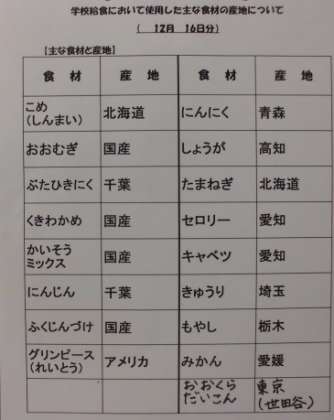 学校給食において使用した主な食材の産地について
( 12月 16日分)
【主な食材と産地】
食 材 産 地 食 材 産 地
こめ
(しんまい) 北海道 にんにく 青森
おおむぎ 国産 しょうが 高知
ぶたひきにく 千葉 たまねぎ 北海道
くきわかめ 国産 セロリー 愛知
かいそう
ミックス 国産 キャベツ 愛知
にんじん 千葉 きゅうり 埼玉
ふくじんづけ 国産 もやし 栃木
グリンピース
(れいとう) アメリカ みかん 愛媛
おおくら 東京
だいこん (世田谷)